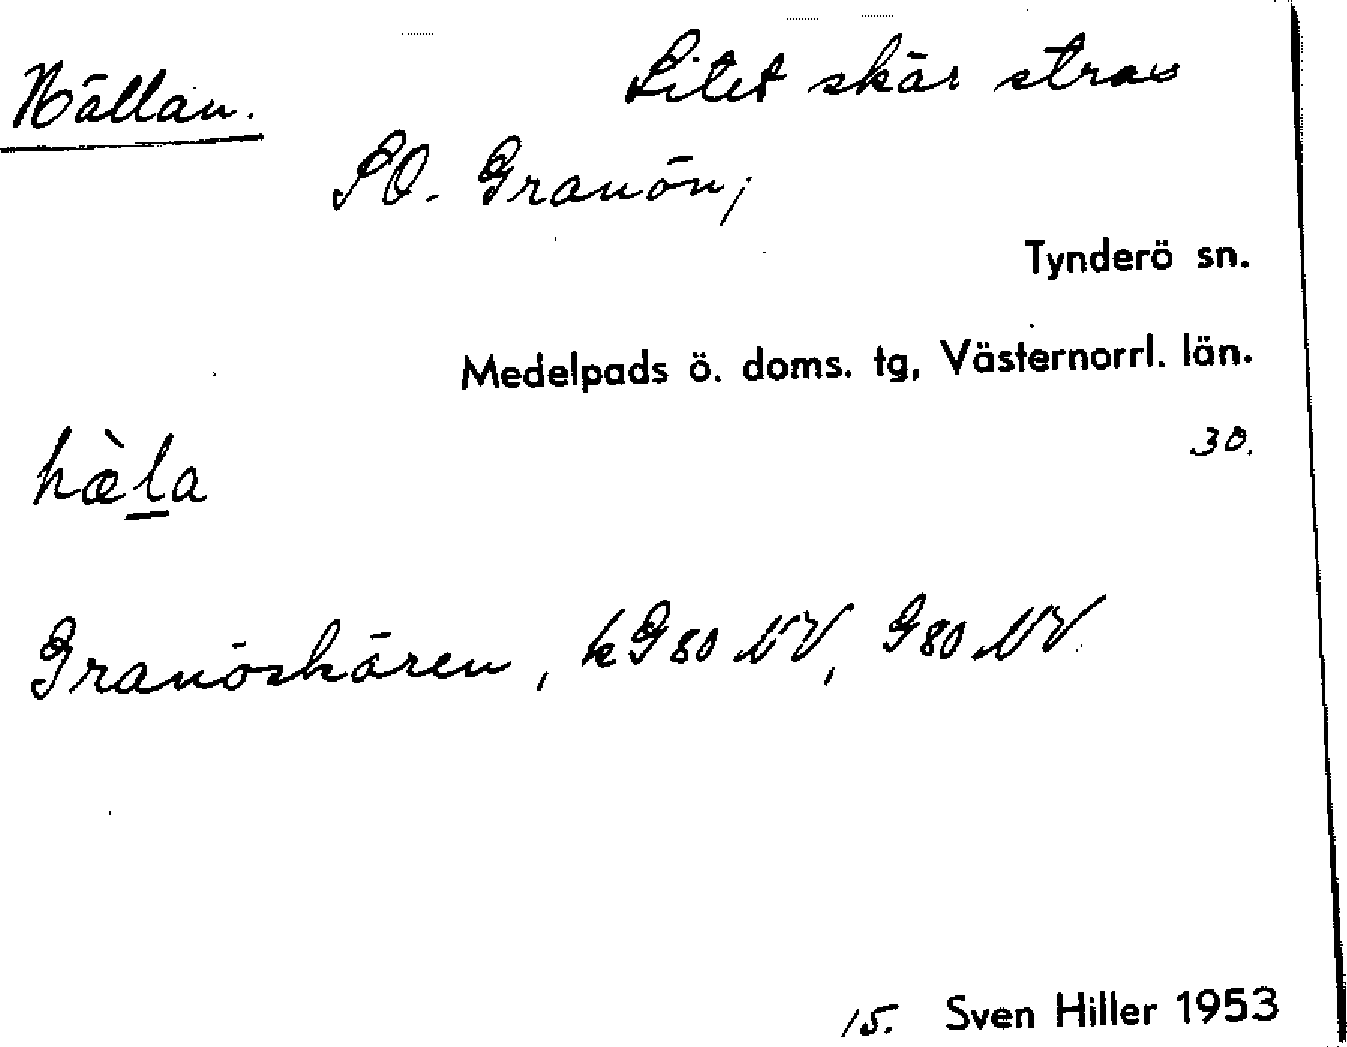 Hällan. Litet skär strax
SO. Granön;
Tynderö sn.
Medelpads ö. doms. tg, Västernorrl. län.
30.
hæ̀la
Granöskären, kG80 NV, G80 NV.
15. Sven Hiller 1953